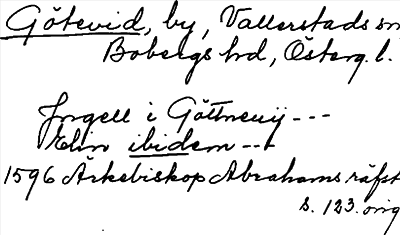 Götevid, by, Vallerstads sn
Bobergs hd, Österg. l.
Jngell i Göttneuij ---
Elin ibidem ---
1596 Ärkebiskop Abrahams räfst
s. 123. orig